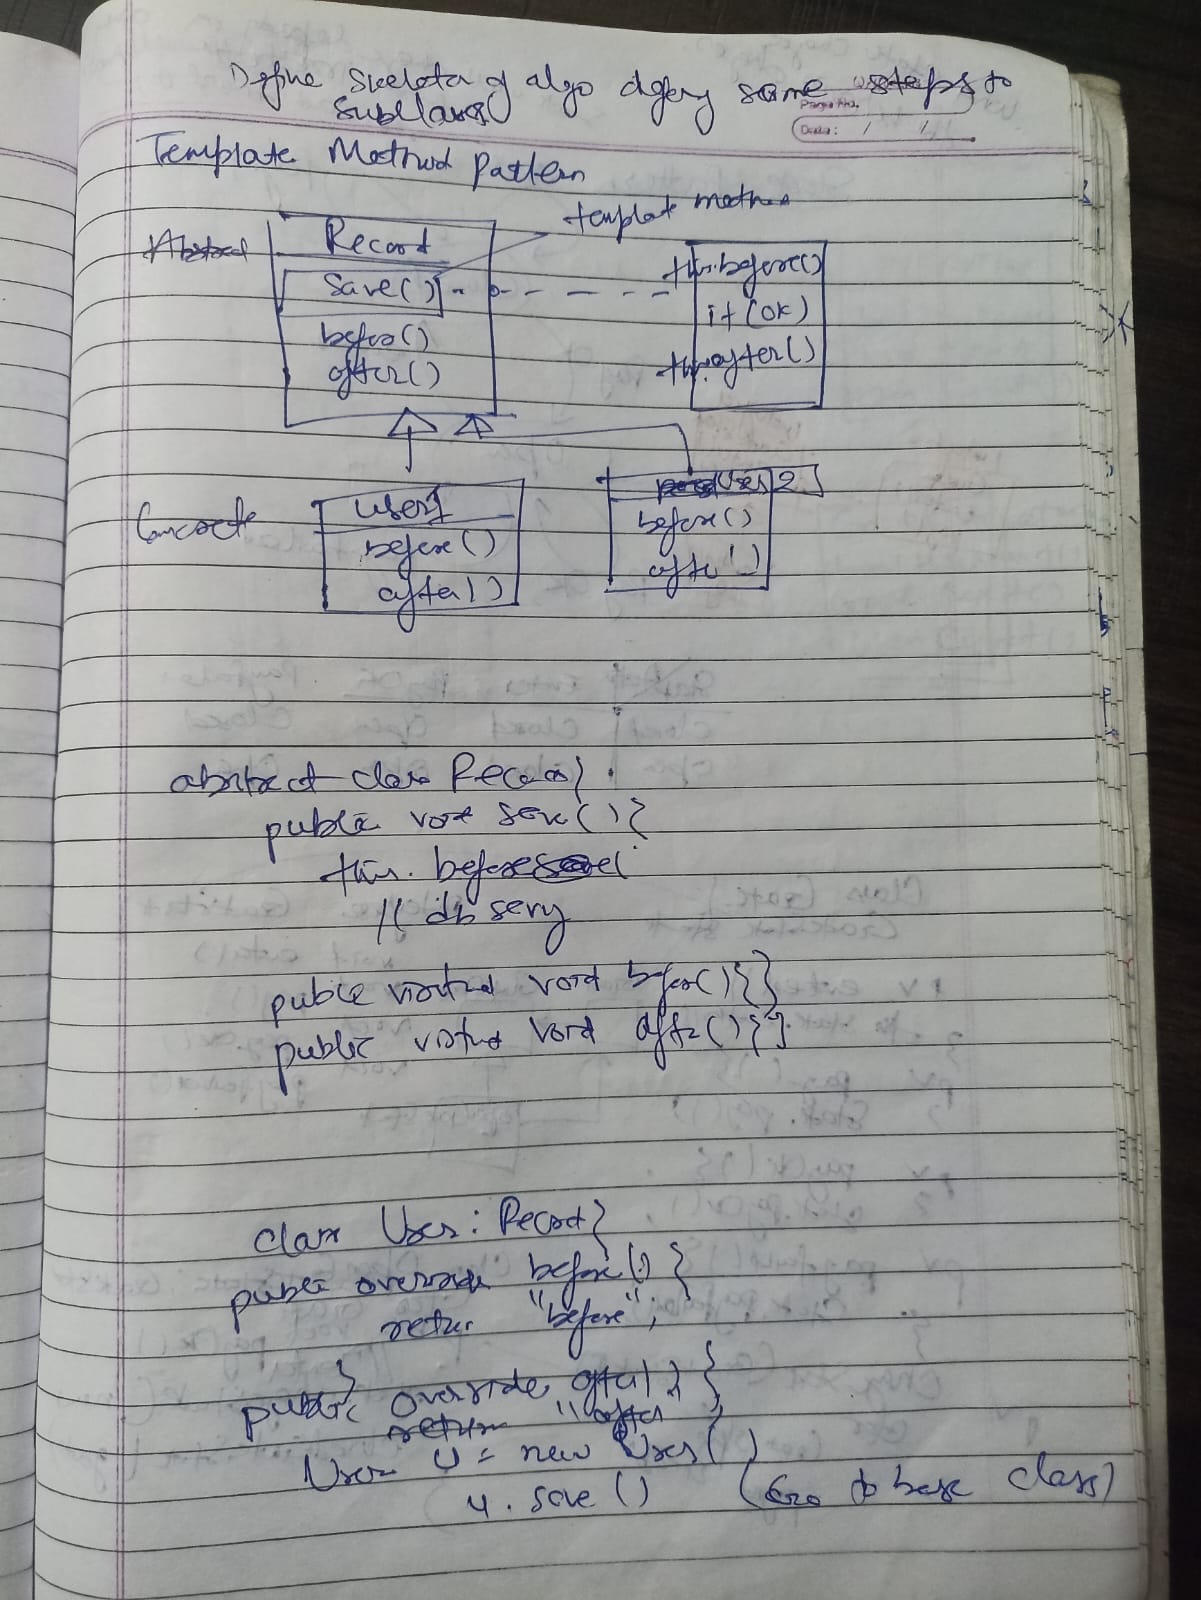 Define Skeleton of algo defery some steps to
Subclasses
Page No.
Date: / /
Template Method Pattern
template method
Record
Save()
befor()
after()
this.before()
if (ok)
this.after()
Concrete
User1
before()
after()
User 2
before()
after()
abstract class Record{
public void save(){
this. before
// db savy
public virtual void befor(){}
public virtual void aftr(){}
class User : Record{
public override before() {
retur "before";
}
public override after() {
return "after"
User U = new User()
u. save () (Goo to base class)